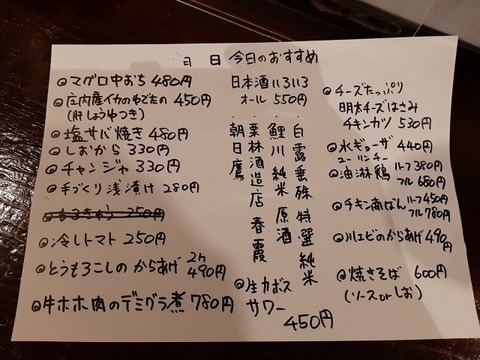 月 日 今日のおすすめ
◎マグロ中おち 480円
◎庄内産イカのゆでたの 450円
(肝しょうゆつき)
◎塩サバ焼き 480円
◎しおから 330円
◎チャンジャ 330円
◎手づくり浅漬け 280円
◎冷しトマト 250円
◎とうもろこしの からあげ 2ケ 490円
◎牛ホホ肉のデミグラ煮 780円
日本酒いろいろ
オール 550円
・白露垂珠 特選純米
・鯉川 純米原酒
・栗林酒造店 春霞
・朝日鷹
◎生カボス
サワー
450円
◎チーズたっぷり
明太チーズはさみ
チキンカツ 530円
◎水ギョーザ 440円
ユーリンチー
◎油淋鶏 ハーフ380円
フル 680円
◎チキン南ばん ハーフ450円
フル780円
◎川エビのからあげ 490円
◎焼きそば 600円
(ソース or しお)